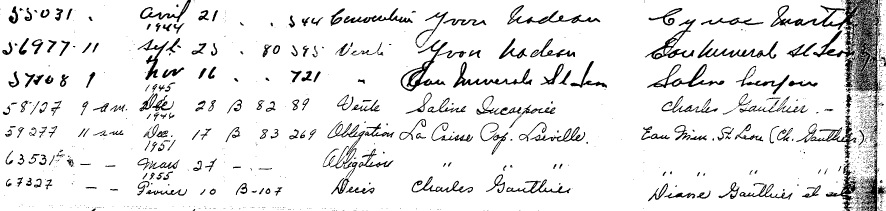 55031 . Avril 21 . . 544 Convention Yvon Nadeau Cyriac
1944
56977 11 Sept 25 . 80 595 Vente Yvon Nadeau Eau Minerale St Leon
57708 9 Nov 16 . . 721 " Eau Minerale St Leon Saline
1945
58127 9 a.m. Dec 28 B 82 89 Vente Saline Incorporée Charles Gauthier. -
1946
59277 11 am Dec. 17 B 83 269 Obligation La Caisse Pop. Eau Min. St Leon (Ch. Gauthier)
1951
63531 - - Mars 27 - Obligation " " " " " "
1955
67327 - - Février 10 B-107 Décès Charles Gauthier Diane Gauthier et